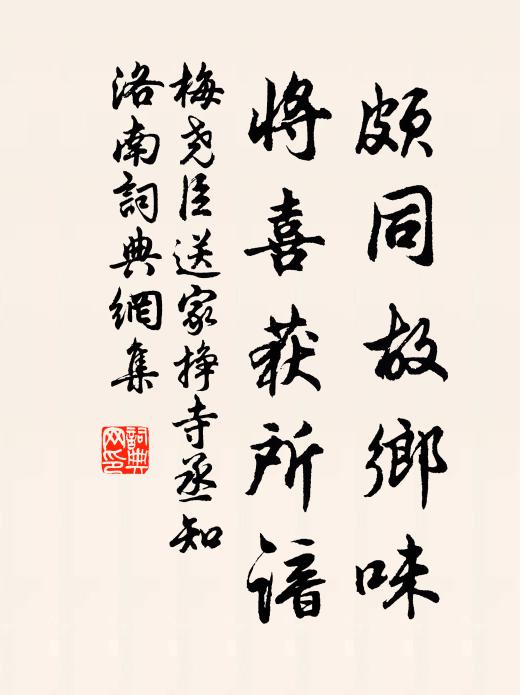 頗同故鄉味
將喜获所諳
梅尧臣送家掙寺丞知
洛南詞典網集
詞典
网印